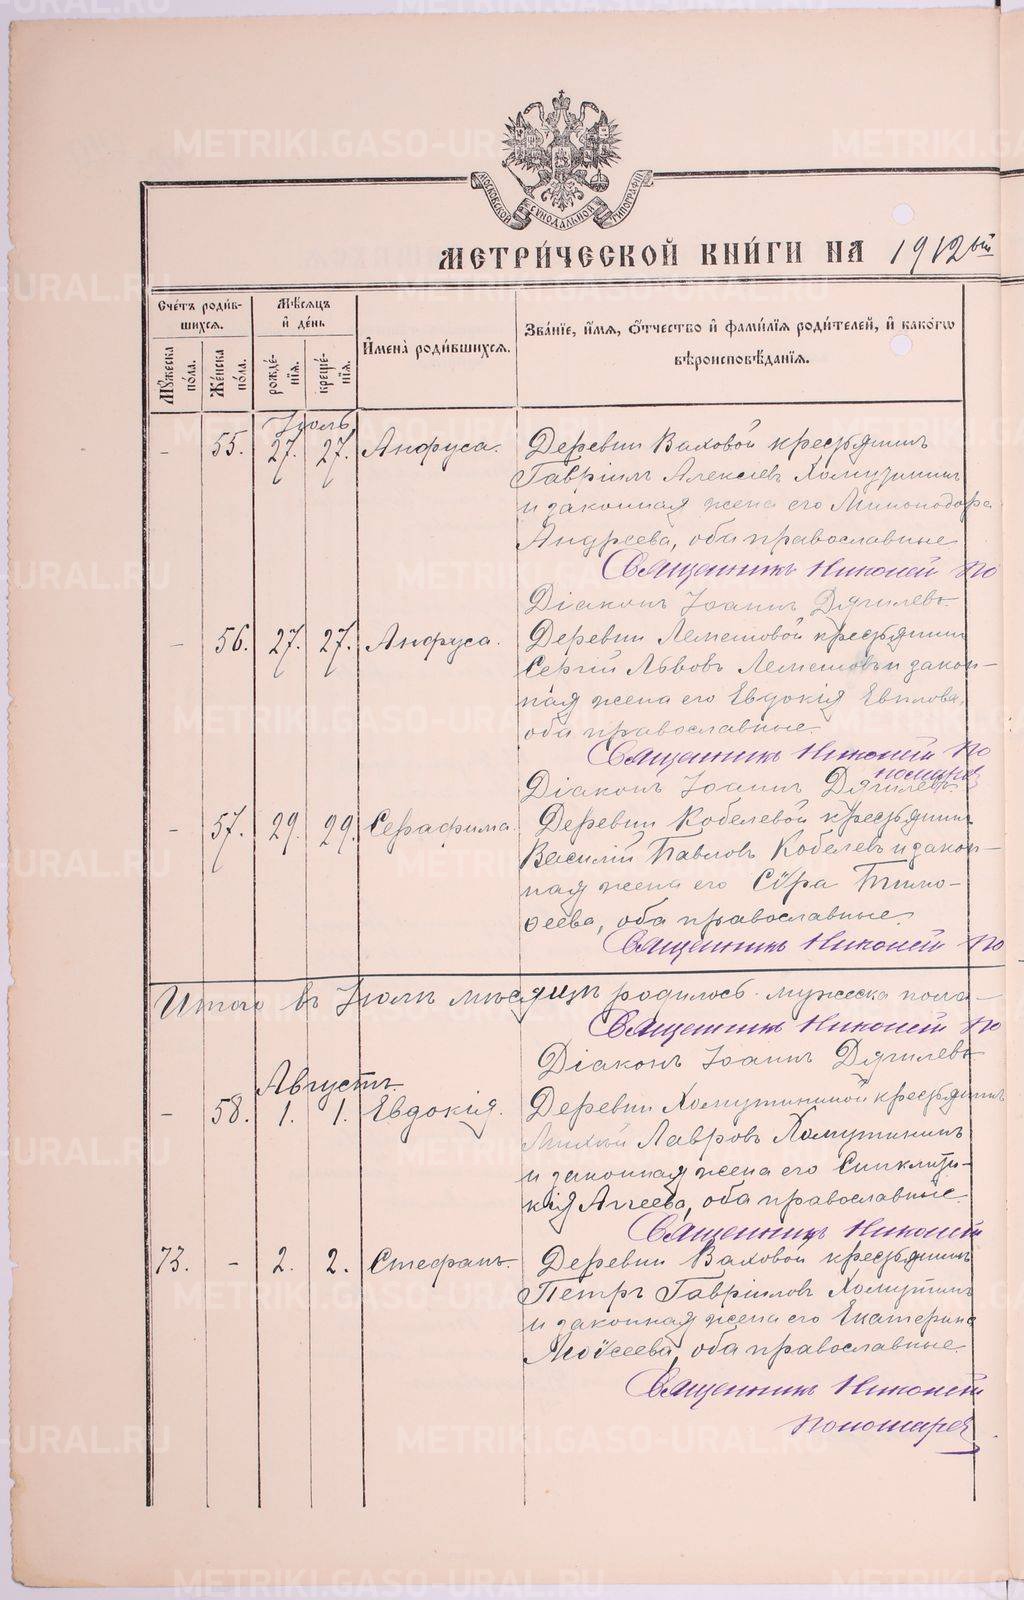 МОСКОВСКОЙ СѴНОДАЛЬНОЙ ТИПОГРАФІИ
МЕТРИ́ЧЕСКОЙ КНИ́ГИ НА 1912ый
Сче́тъ роди́в-
шихся.
Мѣ́сяцъ
и҆ де́нь
И҆мена̀ роди́вшихся.
Зва́нїе, и҆́мя, ѻ҆́тчество и҆ фами́лїя роди́телей, и҆ како́гѡ
вѣроисповѣ́данїя.
Мꙋ́жеска по́ла.
Же́нска по́ла.
рожде́нїя.
креще́нїя.
Іюль
- 55. 27. 27. Анфуса. Деревни Ваховой крестьянинъ
Гавріилъ Алексѣевъ Хомутининъ
и законная жена его Минонодора
Андреева, оба православные
Священникъ Николай По
Діаконъ Іоаннъ Дягилевъ
- 56. 27. 27. Анфуса. Деревни Лемешовой крестьянинъ
Сергій Львовъ Лемешовъ и закон-
ная жена его Евдокія
оба православные.
Священникъ Николай По
номарев
Діаконъ Іоаннъ Дягилевъ
- 57. 29. 29. Серафима. Деревни Кобелевой крестьянинъ
Василій Павловъ Кобелевъ и закон-
ная жена его Сарра Тимо-
ѳеева, оба православные.
Священникъ Николай По
Итого въ Іюлѣ мѣсяцѣ родилось мужеска пола -
Священникъ Николай По
Діаконъ Іоаннъ Дягилевъ
Августъ.
- 58. 1. 1. Евдокія. Деревни Хомутининой крестьянинъ
Михей Лавровъ Хомутининъ
и законная жена его Синклити-
кія Аггеева, оба православные.
Священникъ Николай
73. - 2. 2. Стефанъ. Деревни Ваховой крестьянинъ
Петръ Гавріиловъ Хомутинъ
и законная жена его Екатерина
Моѵсеева, оба православные.
Священникъ Николай
Пономарев
METRIKI.GASO-URAL.RU